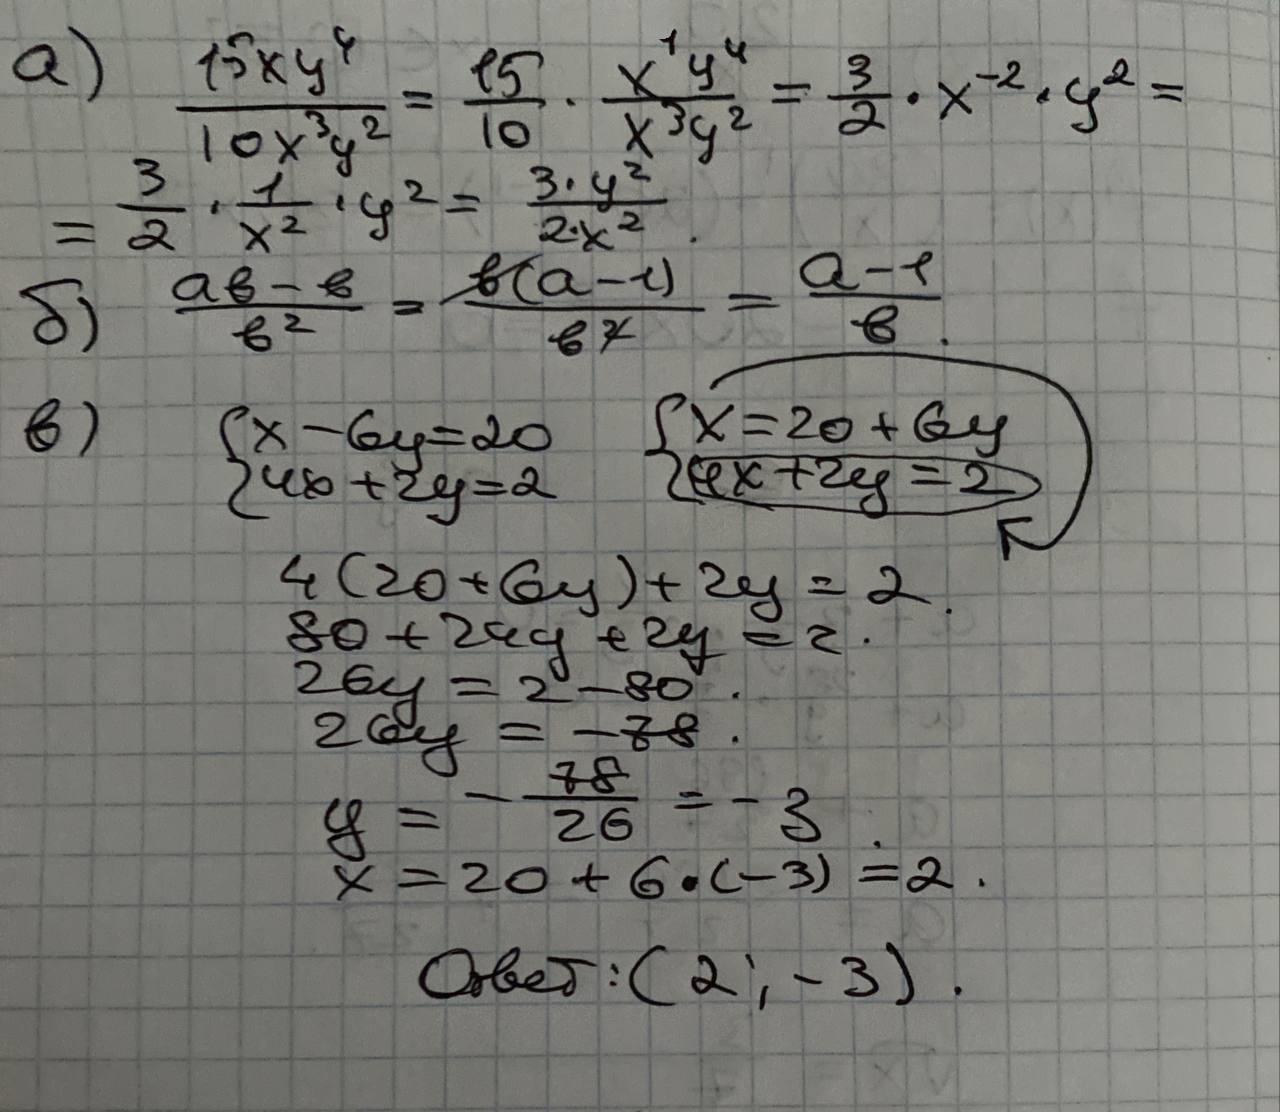 а) 15xy⁴/10x³y² = 15/10 · x¹y⁴/x³y² = 3/2 · x⁻² · y² =
= 3/2 · 1/x² · y² = 3·y²/2·x².
б) ав-в/в² = в(а-1)/в² = а-1/в.
в) {x-6y=20 {x=20+6y
{4x+2y=2 {4x+2y=2
4(20+6y)+2y=2.
80+24y+2y=2.
26y=2-80.
26y=-78.
y=-78/26=-3.
x=20+6·(-3)=2.
Ответ: (2;-3).